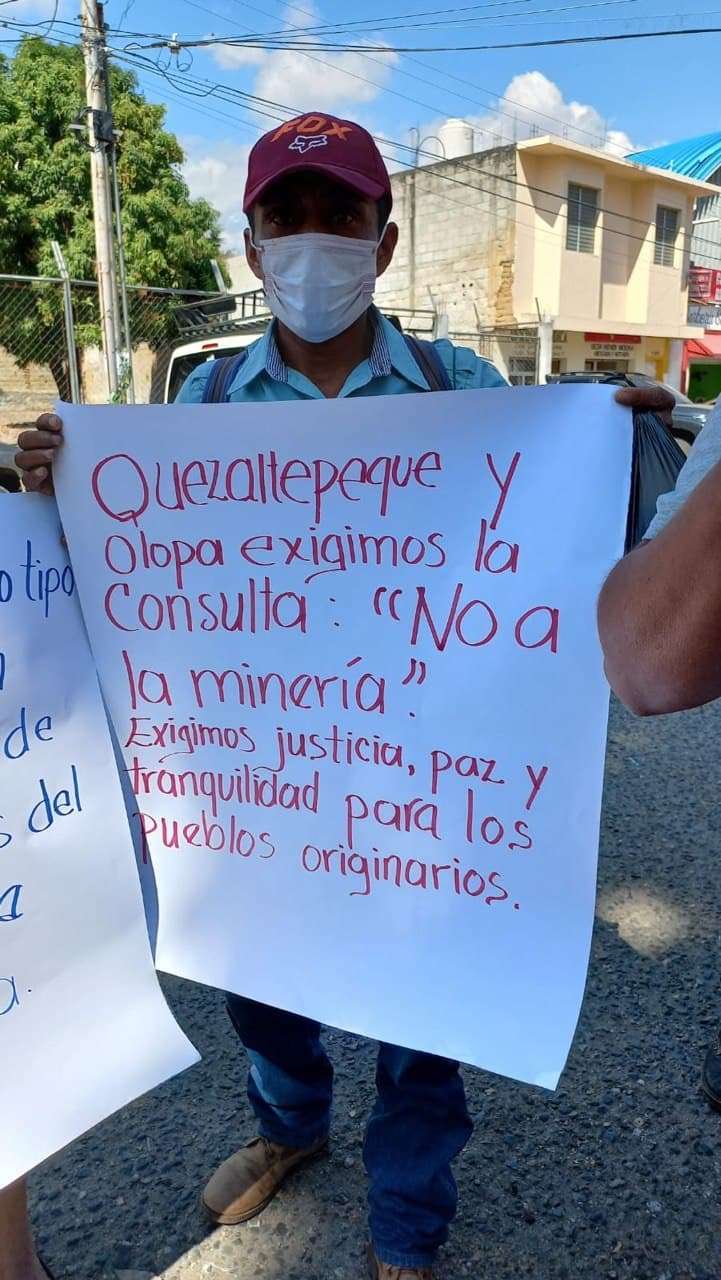 FOX
Quezaltepeque y
Olopa exigimos la
Consulta: "No a
la minería".
Exigimos justicia, paz y
tranquilidad para los
pueblos originarios.
o tipo
de
s del
a
a.